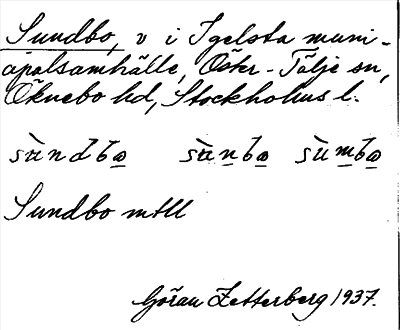 Sundbo, v i Igelsta muni-
cipalsamhälle, Öster-Tälje sn,
Öknebo hd, Stockholms l.
sùndbo sùnbo sùmbo
Sundbo mtll
Göran Zetterberg 1937.